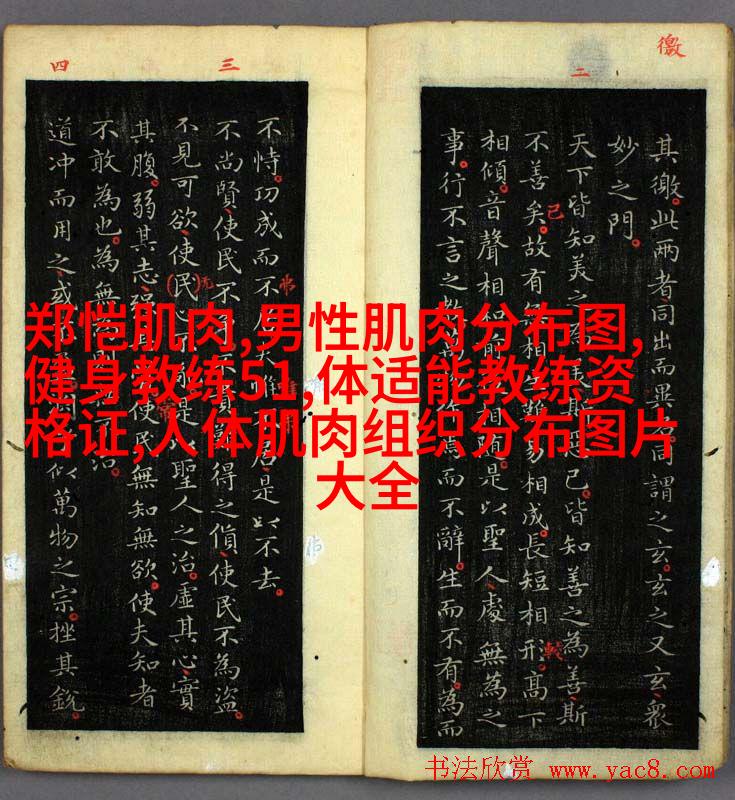 徼
二
其徼。此兩者同出而異名同謂之玄。玄之又玄。衆
妙之門。
天下皆知美之為美斯惡已。皆知善之為善斯
不善矣。故有無相生難易相成。長短相形。高下
相傾。音聲相和前相隨是以聖人處無為之
事。行不言之教萬物作焉而不辭。生而不有。為而
三
四
不恃。功成而不居夫唯不居是以不去。
不尚賢使民不爭不貴難得之貨使民不為盜。
不見可欲使民心不是以聖人之治。虛其心實
其腹。弱其志強其使民無知無欲。使夫知者
不敢為也。為無則無不治
道冲而用之或似萬物之宗。挫其銳
郑恺肌肉,男性肌肉分布图,
健身教练51,体适能教练资
格证,人体肌肉组织分布图片
大全
书法欣赏 www.yac8.com